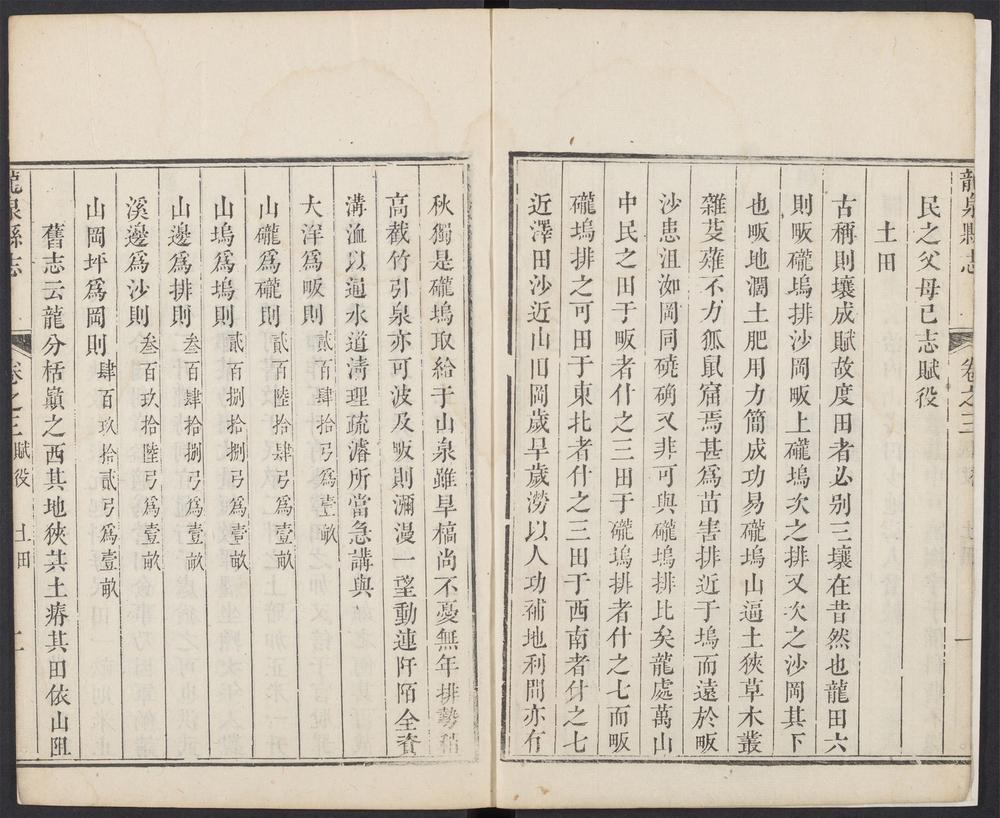 龍泉縣志
卷之三
一
民之父母已志賦役
土田
古稱則壤成賦故度田者必别三壤在昔然也龍田六
則畈礲塢排沙岡畈上礲塢次之排又次之沙岡其下
也畈地濶土肥用力簡成功易礲塢山逼土狹草木叢
雜芟薙不力狐鼠窟焉甚爲苗害排近于塢而遠於畈
沙患沮洳岡同磽确又非可與礲塢排比矣龍處萬山
中民之田于畈者什之三田于礲塢排者什之七而畈
礲塢排之可田于東北者什之三田于西南者什之七
近澤田沙近山田岡歲旱歲澇以人功補地利間亦有
秋獨是礲塢取給于山泉雖旱槁尚不憂無年排勢稍
高截竹引泉亦可波及畈則瀰漫一望動連阡陌全資
溝洫以通水道清理疏濬所當急講與
大洋爲畈則 貳百肆拾弓爲壹畝
山礲爲礲則 貳百陸拾肆弓爲壹畝
山塢爲塢則 貳百捌拾捌弓爲壹畝
山邊爲排則 叁百肆拾捌弓爲壹畝
溪邊爲沙則 叁百玖拾陸弓爲壹畝
山岡坪爲岡則 肆百玖拾貳弓爲壹畝
舊志云龍分栝巔之西其地狹其土瘠其田依山阻
龍泉縣志
卷之三 賦役 土田